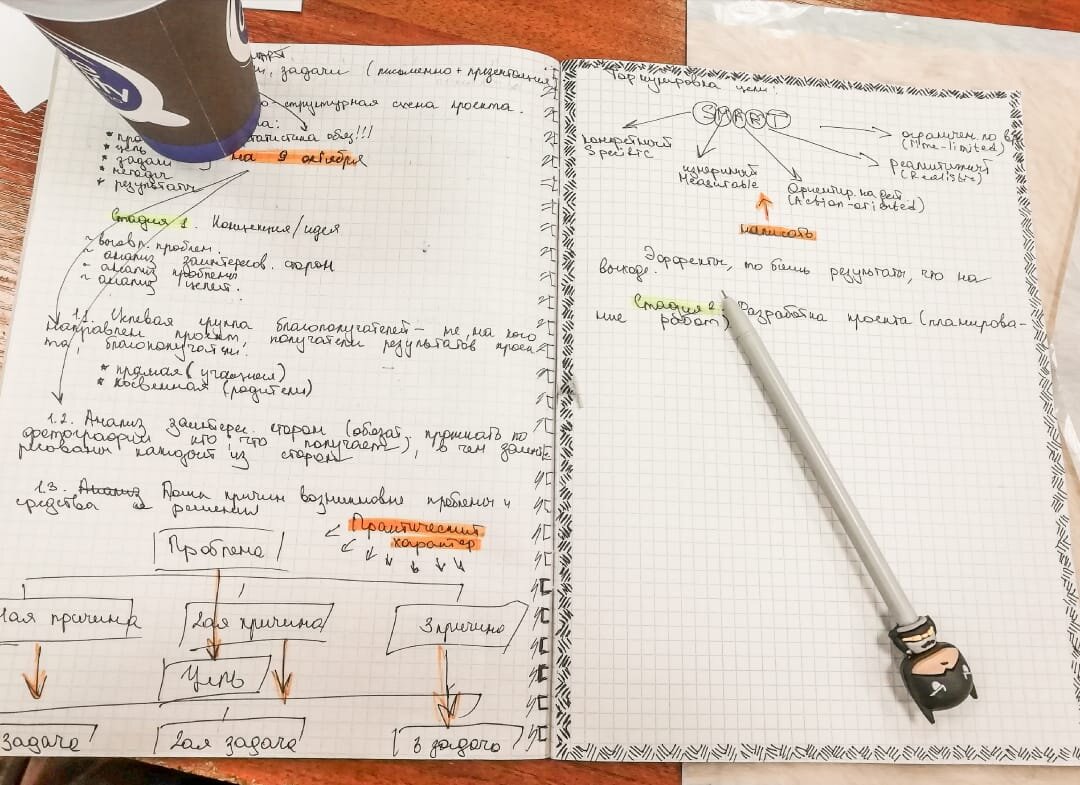 задачи (письменно + презентация)
структурная схема проекта.
статистика обяз!!!
* цель
* задачи
на 9 октября
* методы
* результаты
Стадия 1. Концепция/идея
~ выявл. проблем.
~ анализ заинтересов. сторон
~ анализ проблемы
~ анализ целей.
1.1. Целевая группа благополучателей – те, на кого
направлен проект, получатели результатов проек-
та, благополучатели.
* прямая (участники)
* косвенная (родители)
1.2. Анализ заинтерес. сторон (обязат. по
кто что получает), в чем заинте-
ресованы каждый из сторон
1.3. Анализ Поиск причин возникновение проблемы и
средства её решения
Практический
характер
Проблема
1ая причина
2ая причина
3 причина
Цель
задача
2ая задача
3 задача
Формулировка цели:
SMART
конкретный
Specific
измеримый
Measurable
Ориентир. на дей.
(Action-oriented)
реалистичный
(Realistic)
ограничен по
(Time-limited)
написать
Эффекты, то бишь результаты, что на
выходе.
Стадия 2. Разработка проекта (планирова-
ние работ)